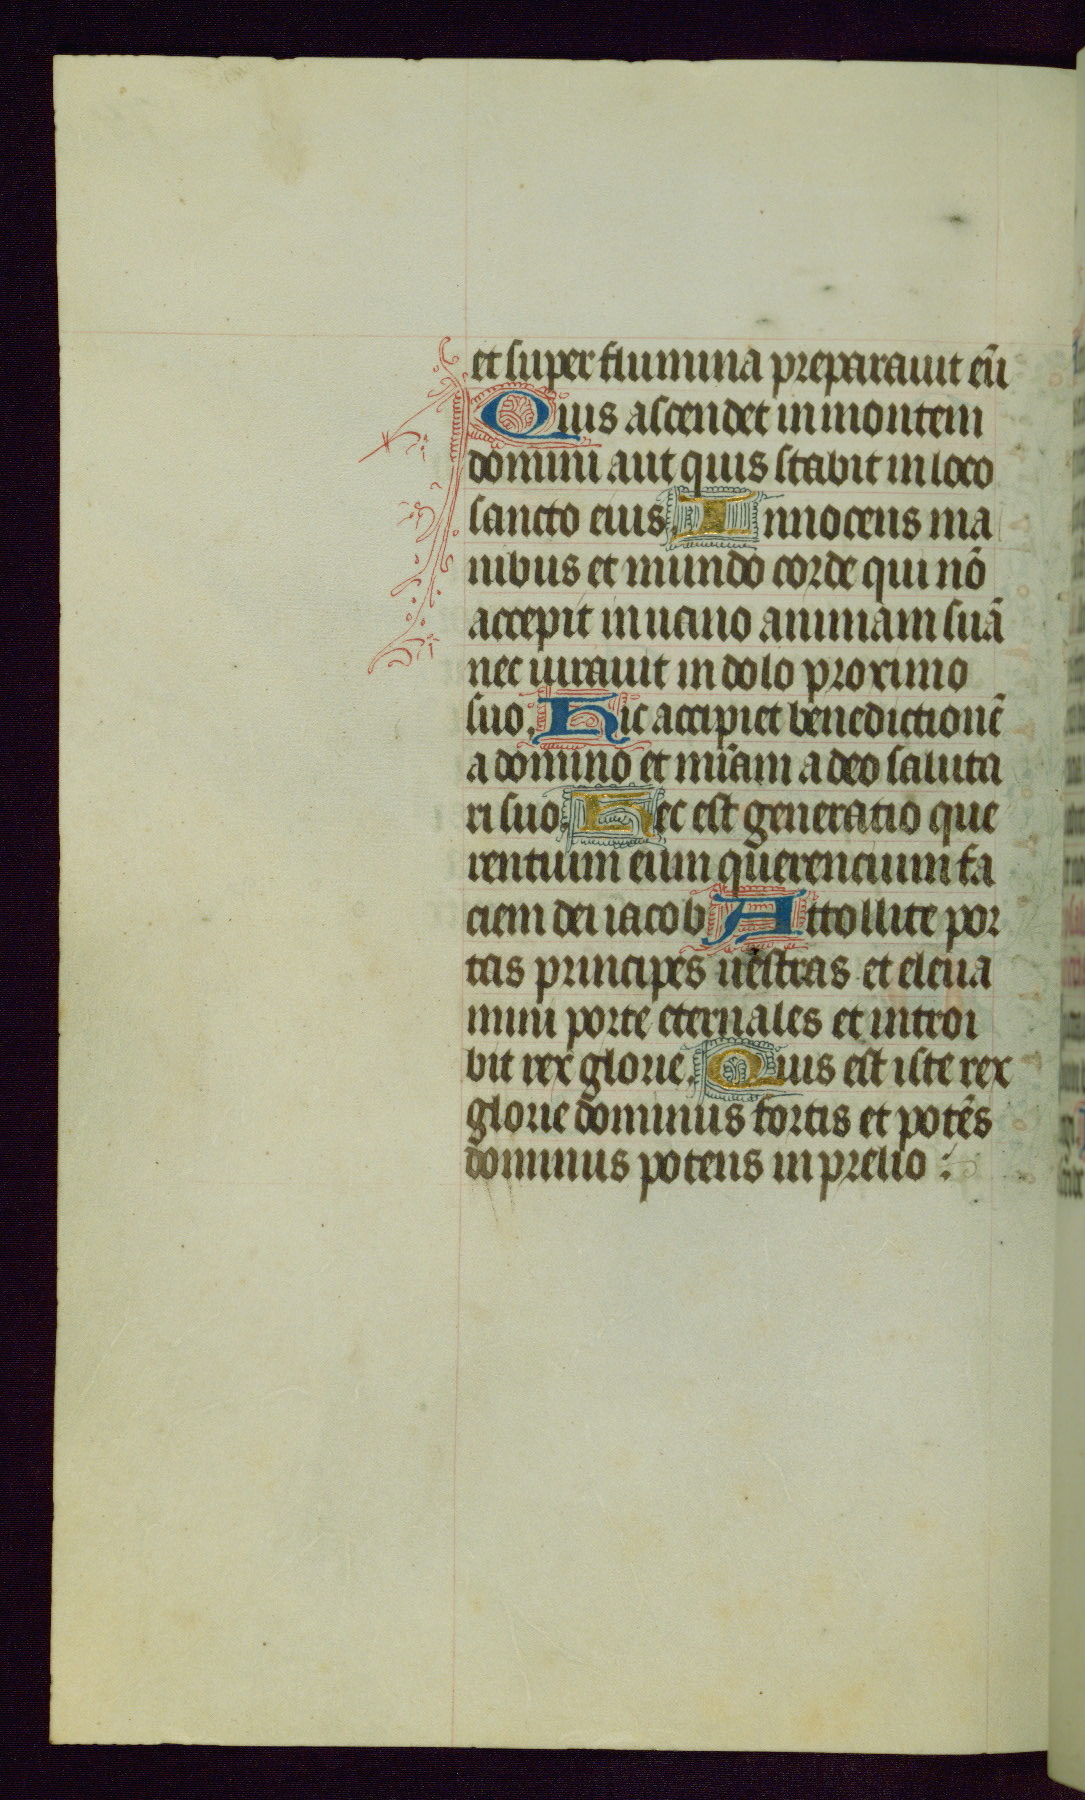 et super flumina preparauit eū
Quis ascendet in montem
domini aut quis stabit in loco
sancto eius. Innocens ma
nibus et mundo corde qui nō
accepit in uano animam suā
nec iurauit in dolo proximo
suo. Hic accipiet benedictionē
a domino et mīam a deo saluta
ri suo. Hec est generatio que
rentium eum querencium fa
ciem dei iacob Attollite por
tas principes uestras et eleua
mini porte eternales et introi
bit rex glorie. Quis est iste rex
glorie dominus fortis et potēs
dominus potens in prelio :